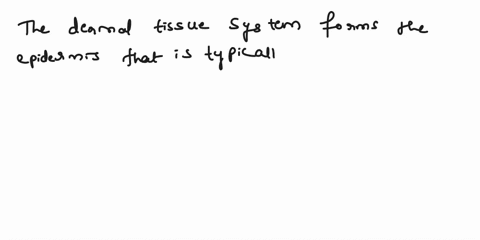 The dermal tissue system forms the
epidermis that is typicall